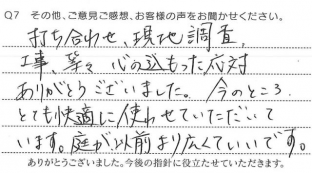 Q7 その他、ご意見ご感想、お客様の声をお聞かせください。
打ち合わせ、現地調査、
工事、等々 心の込もった応対
ありがとうございました。今のところ、
とても快適に使わせていただいて
います。庭が以前より広くていいです。
ありがとうございました。今後の指針に役立たせていただきます。